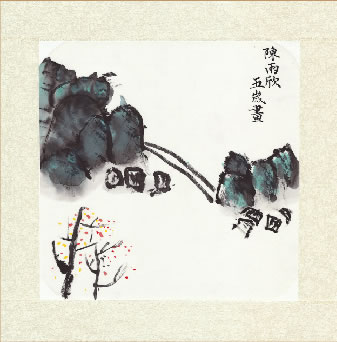 陳雨欣
五歲畫